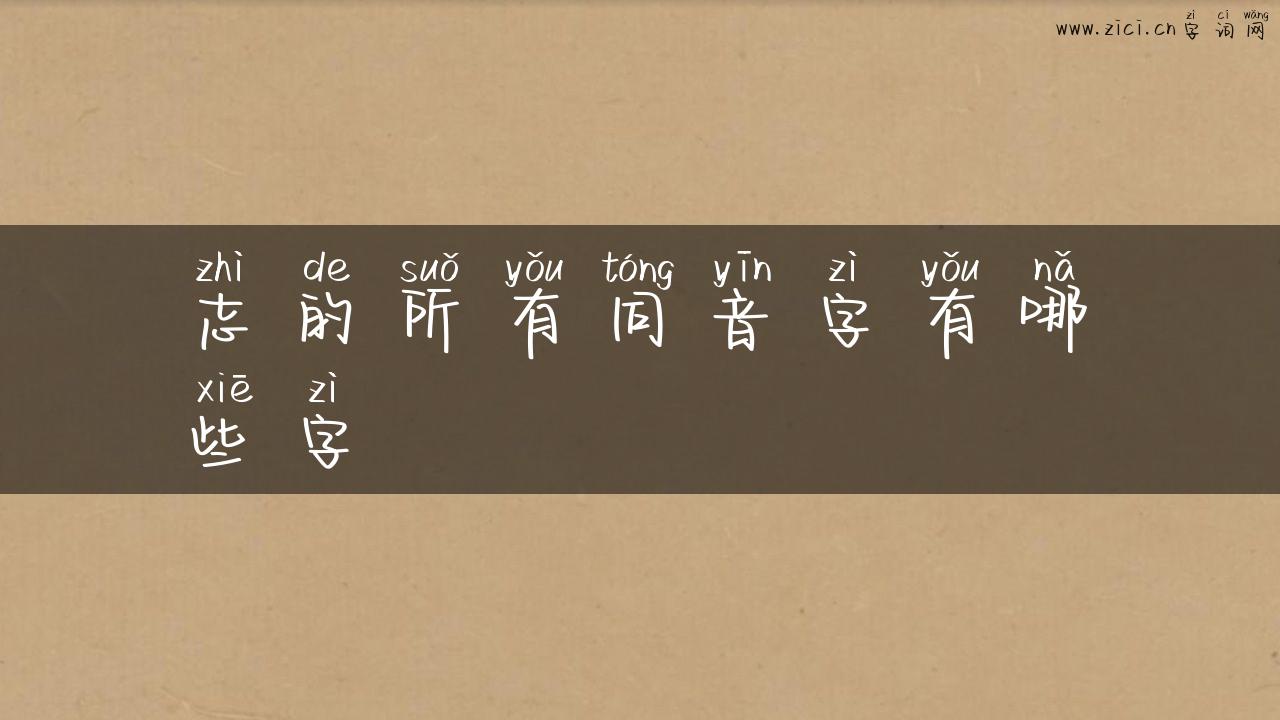 zì cí wǎng
www.zici.cn 字词网
zhì de suǒ yǒu tóng yīn zì yǒu nǎ
志的所有同音字有哪
xiē zì
些字